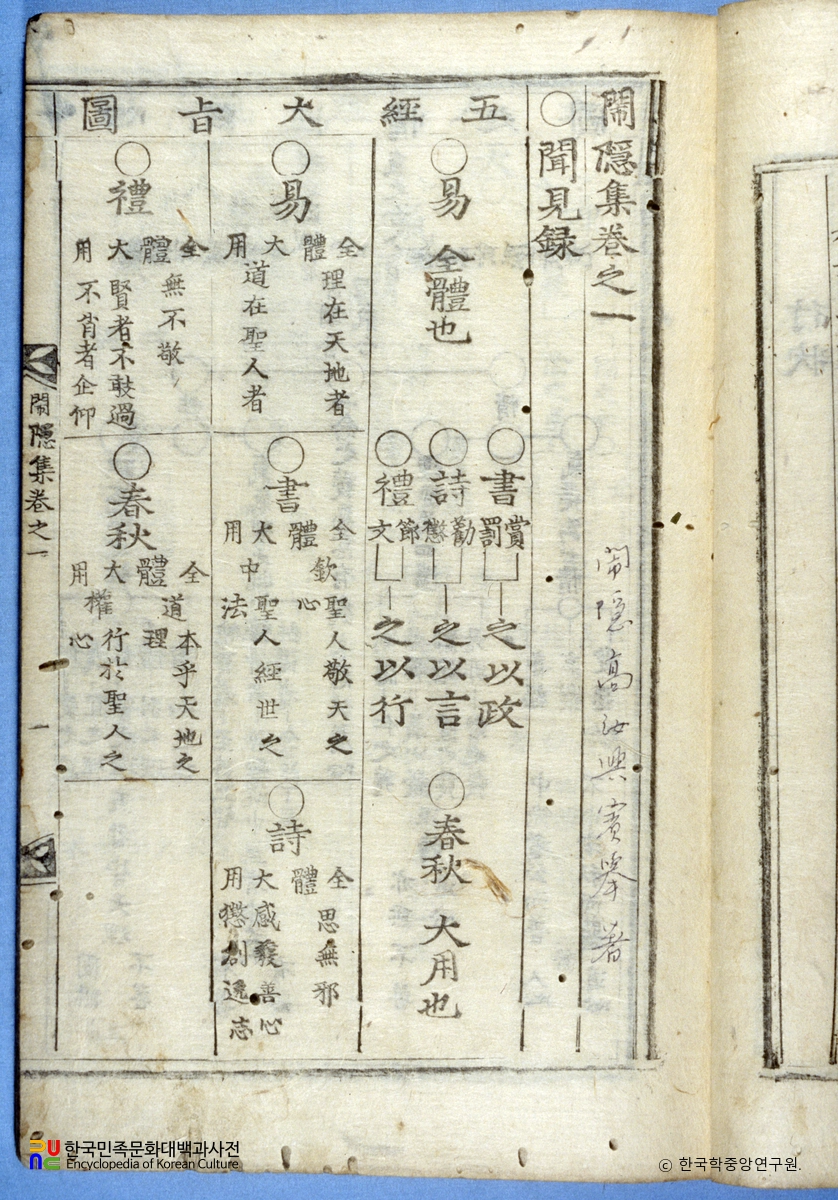 鬧隱集卷之一
鬧隱高汝興賓擧著
○聞見録
五經大㫖圖
○易 全體也
○書 賞罰 之以政
○詩 勸懲 之以言
○禮 節文 之以行
○春秋 大用也
○易
全體 理在天地者
大用 道在聖人者
○書
全體 聖人敬天之欽心
大用 聖人經世之中法
○詩
全體 思無邪
大用 感發善心
懲創逸志
○禮
全體 無不敬
大用 賢者不敢過
不肖者企仰
○春秋
全體 本乎天地之道理
大用 行於聖人之權心
鬧隱集卷之一
一
한국민족문화대백과사전
Encyclopedia of Korean Culture
© 한국학중앙연구원.